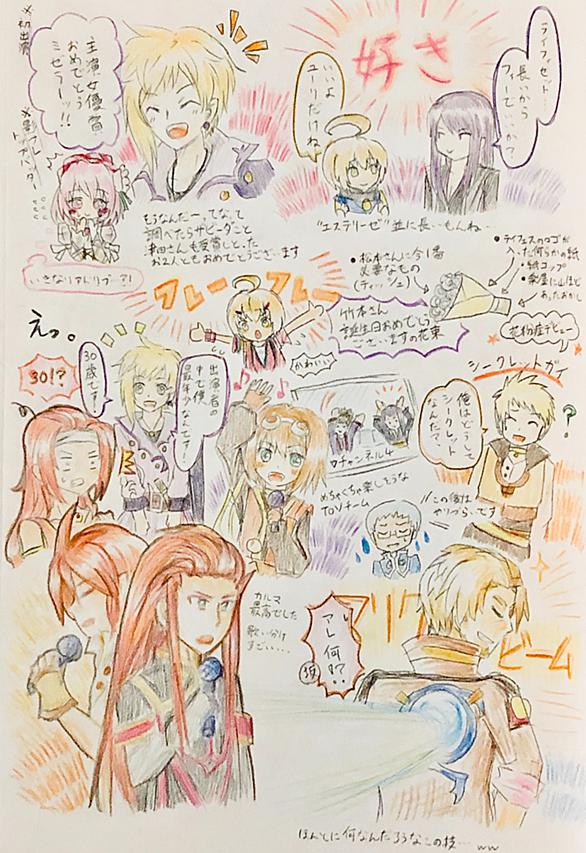 ※初出演
主演女優賞
おめでとう
ミゼラーッ!!
好き
いいよ
ユーリだけね
ライフィセット…
長いから
フィーでいいか?
もうなんだーってなって
調べたらザビーダこと
津田さんも受賞しとった
お2人ともおめでとうございます
"エステリーゼ"並に長いもんね…
いきなりアドリブー?!
フレー フレー
•松本さんに今1番
必要なもの
(ティッシュ)
竹本さん
誕生日おめでとう
ございますの花束
•テイフェスのロゴが
入った何らかの紙
•紙コップ
•楽屋に山ほど
あったおかし
花粉症デビュー
えっ。
30!?
30歳です!
出演者の
中で僕
最年少なんです!
かわいい
ワチャンネル4
めちゃくちゃ楽しそうな
TOVチーム
シークレットガイ
俺はどうして
シークレット
なんだ?
?
この後は
やりづらいです
カルマ
最高でした
歌い分け
すごい…
アレ何!?
ビーム
ほんとに何なんだろうなこの技… ww